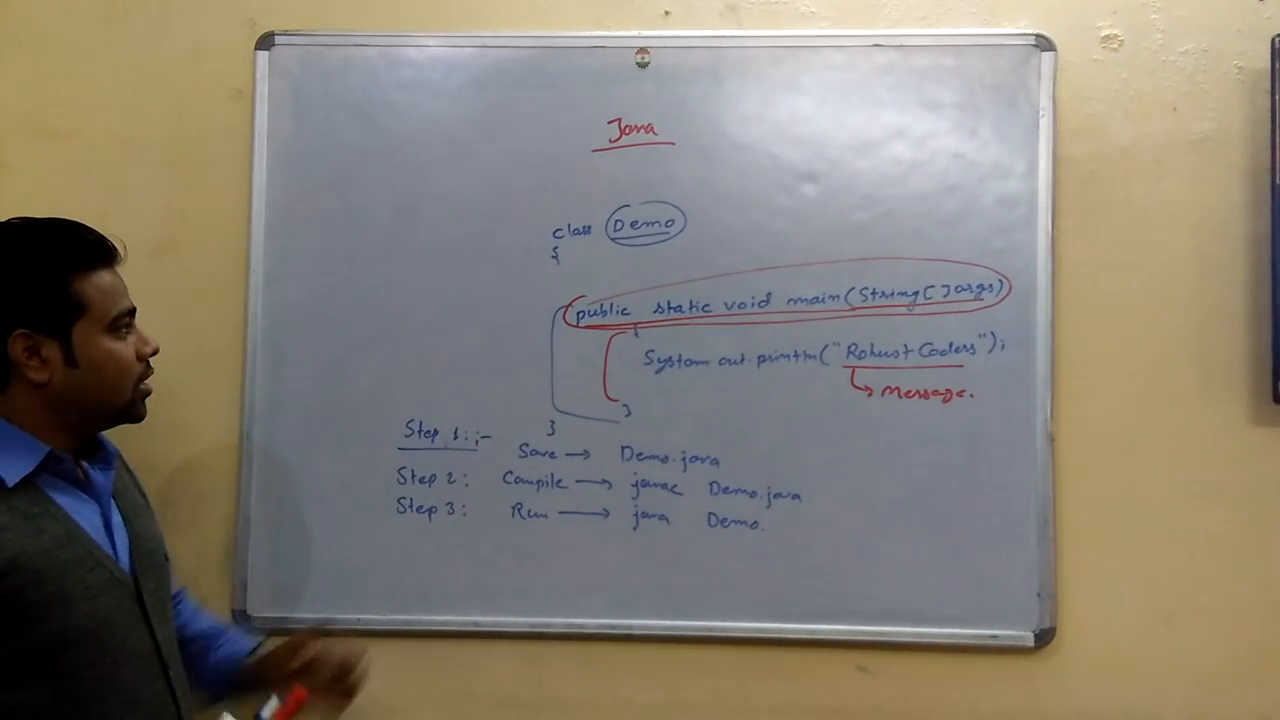 Java
class Demo
{
public static void main(String[]args)
{
System.out.println("Robust Coders");
→ Message.
}
}
Step 1:;-
Save → Demo.java
Step 2: Compile → javac Demo.java
Step 3: Run → java Demo.